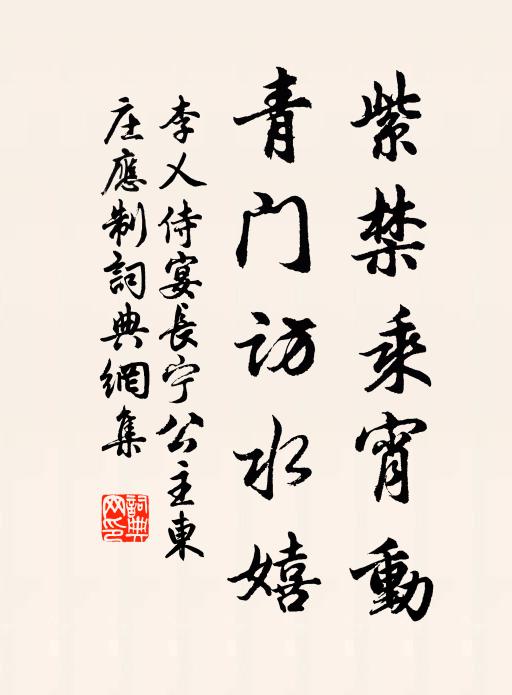 紫禁乘宵動
青门访水嬉
李乂侍宴長宁公主東
庄應制詞典網集
詞典
网印